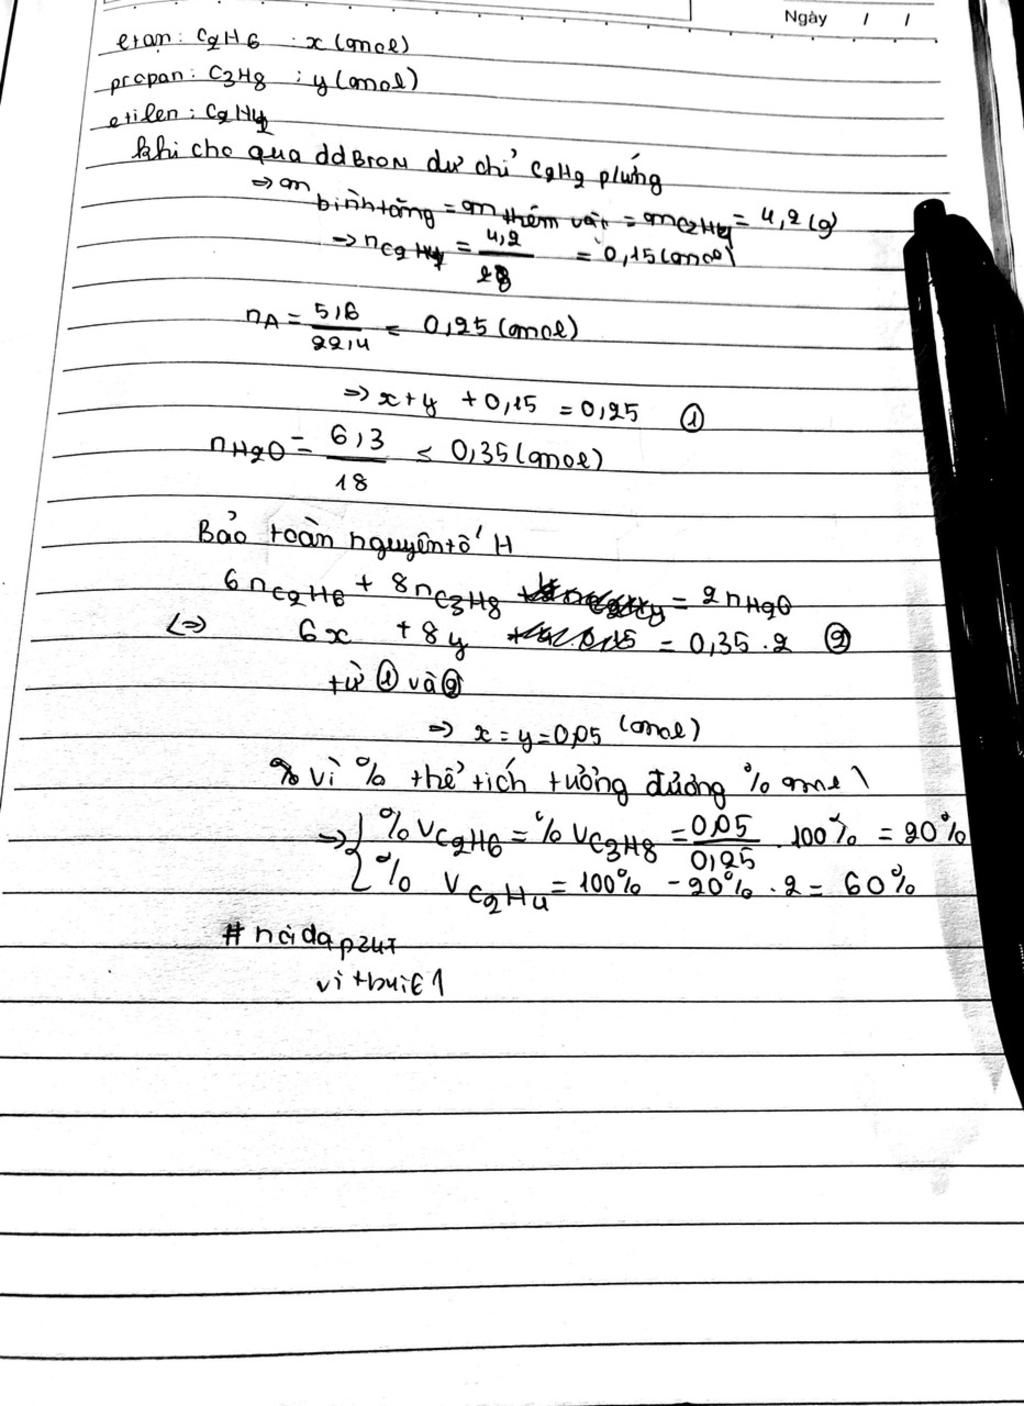 Ngày / /
etan: C2H6 : x (mol)
propan: C3H8 : y (mol)
etilen: C2H4
khi cho qua dd Brom dư chỉ C2H2 p/ứng
=> m bình tăng = m thêm vào = m C2H4 = 4,2 (g)
=> n C2H4 = 4,2 / 28 = 0,15 (mol)
nA = 5,6 / 22,4 = 0,25 (mol)
=> x + y + 0,15 = 0,25 ①
nH2O = 6,3 / 18 = 0,35 (mol)
Bảo toàn nguyên tố H
6nC2H6 + 8nC3H8 = 2nH2O
<=> 6x + 8y = 0,35 . 2 ②
từ ① và ②
=> x = y = 0,05 (mol)
vì % thể tích tương đương % mol
=> { %VC2H6 = %VC3H8 = 0,05 / 0,25 . 100% = 20%
% VC2H4 = 100% - 20% . 2 = 60%